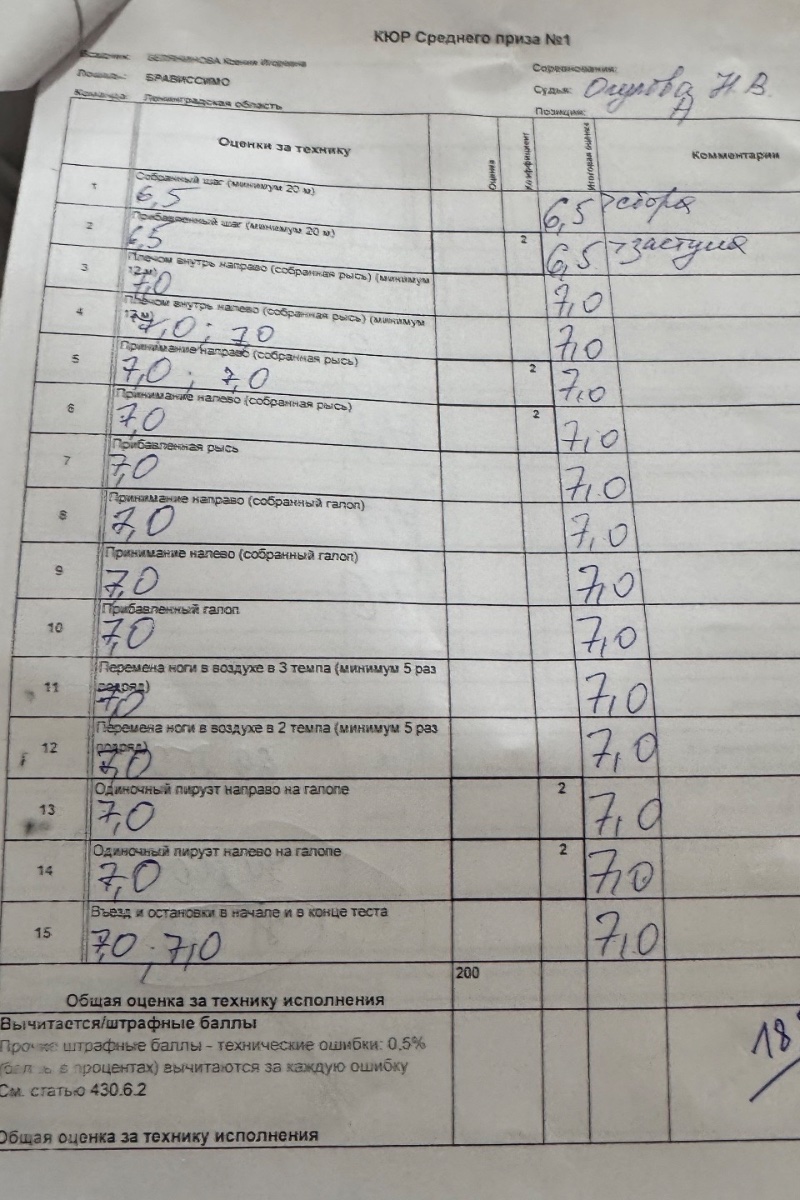 КЮР Среднего приза №1
Всадник: БЕЛЯНИНОВА Ксения Игоревна
Лошадь: БРАВИССИМО
Команда: Ленинградская область
Соревнования:
Судья: Н. В.
Позиция: A
Оценки за технику Оценка Коэффициент Итоговая оценка Комментарии
1 Собранный шаг (минимум 20 м)
6,5 6,5 > сбора
2 Прибавленный шаг (минимум 20 м)
6,5 2 6,5 > заступа
3 Плечом внутрь направо (собранная рысь) (минимум
12 м)
7,0 7,0
4 Плечом внутрь налево (собранная рысь) (минимум
12 м)
7,0 ; 7,0 7,0
5 Принимание направо (собранная рысь)
7,0 ; 7,0 2 7,0
6 Принимание налево (собранная рысь)
7,0 2 7,0
7 Прибавленная рысь
7,0 7,0
8 Принимание направо (собранный галоп)
7,0 7,0
9 Принимание налево (собранный галоп)
7,0 7,0
10 Прибавленный галоп
7,0 7,0
11 Перемена ноги в воздухе в 3 темпа (минимум 5 раз
подряд)
7,0 7,0
12 Перемена ноги в воздухе в 2 темпа (минимум 5 раз
подряд)
7,0 7,0
13 Одиночный пируэт направо на галопе
7,0 2 7,0
14 Одиночный пируэт налево на галопе
7,0 2 7,0
15 Въезд и остановки в начале и в конце теста
7,0 ; 7,0 7,0
Общая оценка за технику исполнения 200
Вычитается/штрафные баллы
Прочие штрафные баллы - технические ошибки: 0,5%
(баллы в процентах) вычитаются за каждую ошибку
См. статью 430.6.2
18
Общая оценка за технику исполнения